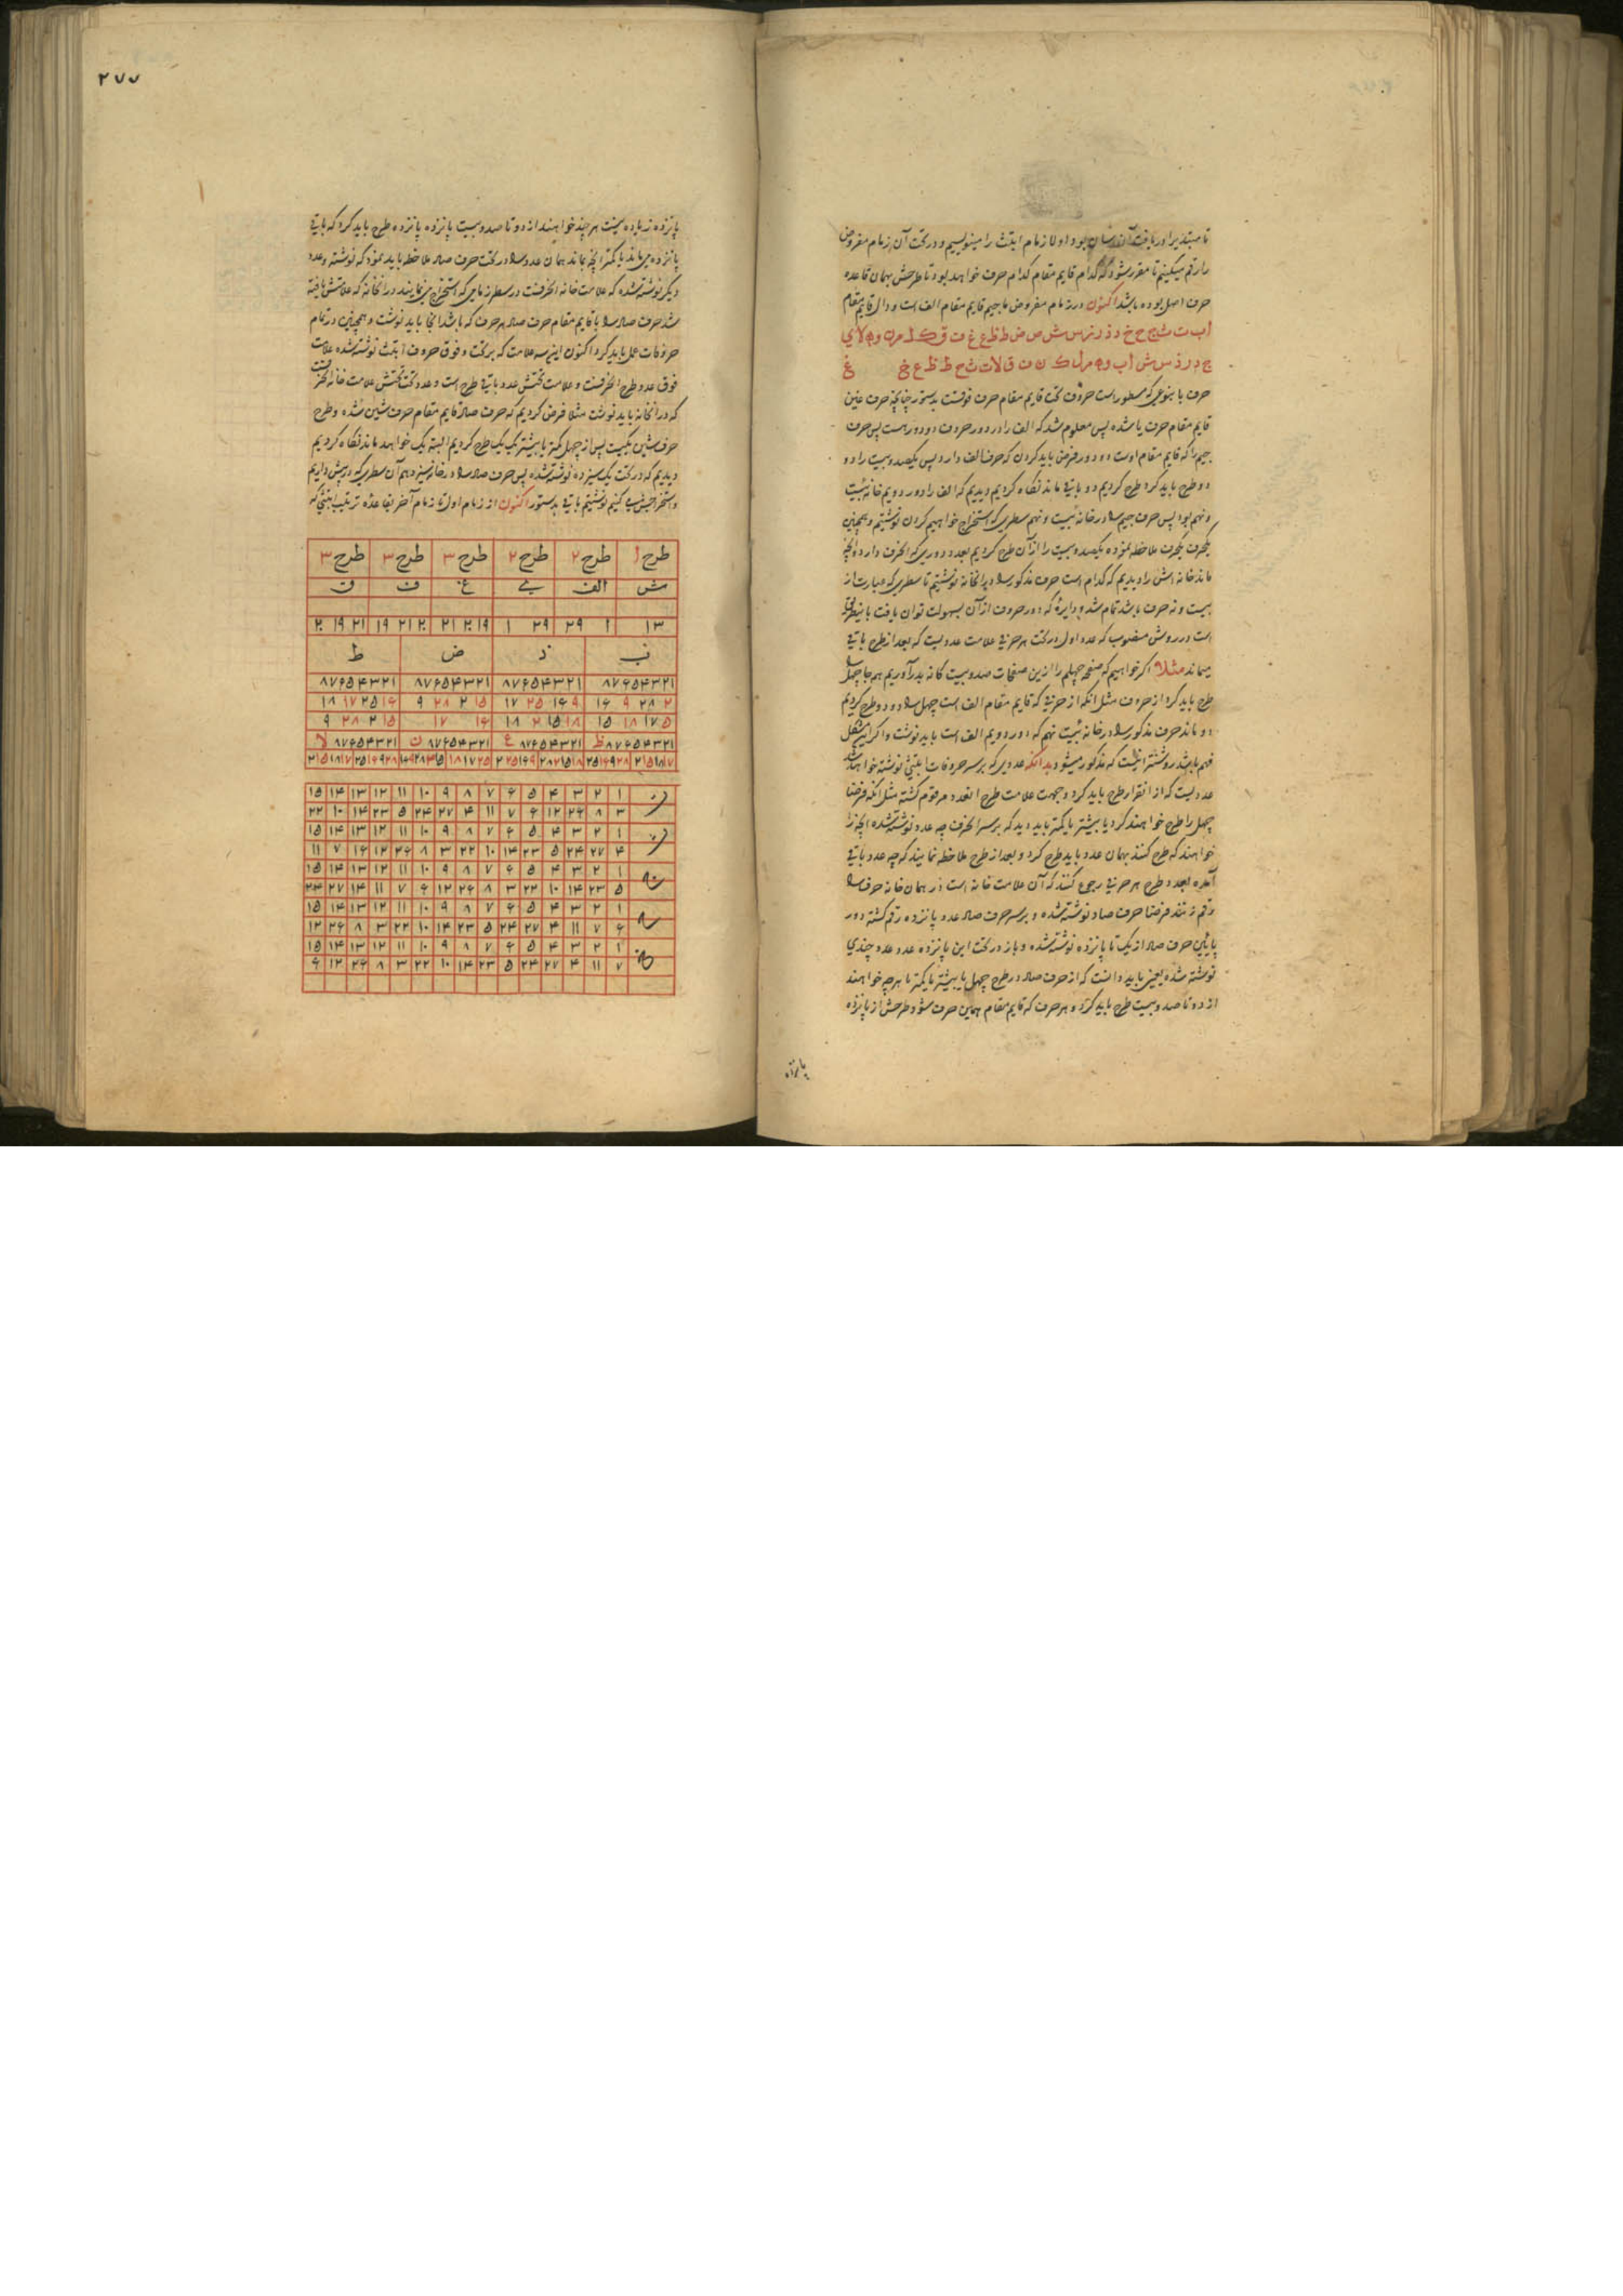 تا مبتدیرا دریافت آن آسان بود اولا زمام ابتث را مینویسیم و در تحت آن زمام مفروض
را رقم میکنیم تا مقرر شود که کدام قایم مقام کدام حرف خواهد بود تا طرحش بهمان قاعده
حرف اصل بوده باشد اکنون در زمام مفروض ما جیم قایم مقام الف است و دال قایم مقام
ا ب ت ث ج ح خ د ذ ر ز س ش ص ض ط ظ ع غ ف ق ک ل م ن و ه لا ی
ج د ر ذ س ش ا ب و ه م ل ک ن ف ق لا ت ث ح ط ظ ع خ غ
حرف با بنوعی که مسطور است حروف تحت قایم مقام حرف فوقست بدستور چنانچه حرف غین
قایم مقام حرف یا شده پس معلوم شد که الف را در دور حروف دو دور هست پس حرف
جیم را که قایم مقام اوست دو دور فرض باید کردن که حرف الف دارد پس یکصد و بیست را دو
دو طرح باید کرد طرح کردیم دو باقی ماند نگاه کردیم دیدیم که الف را دور دویم خانه بیست
و نهم بود پس حرف جیم را در خانه بیست و نهم سطری که استخراج خواهیم کردن نوشتیم و همچنین
یکحرف یکحرف ملاحظه نموده یکصد و بیست را از آن طرح کردیم بعدد دوری که الحرف دارد و آنچه
ماند خانه اش را دیدیم که کدام است حرف مذکور را در انخانه نوشتیم تا سطری که عبارت از
بیست و نه حرف باشد تمام شد و دایرهٔ که دور حروف از آن بسهولت توان یافت باینطریق
است در روش منصوب که عدد اول در تحت هر حرفی علامت عددیست که بعد از طرح باقی
میماند مثلا اگر خواهیم که صفحه چهلم را ازین صفحات صد و بیست کانه بدر آوریم همه جا چهل را
طرح باید کرد از حروف مثل انکه از حرفی که قایم مقام الف است چهل را دو دو طرح کردیم
دو ماند حرف مذکور را در خانه بیست نهم که دور دویم الف است باید نوشت و اگر این مشکل
فهم باشد روشنتر انست که مذکور میشود بدانکه عددی که بر سر حروفات ابتثی نوشته خواهد شد
عددیست که از انقرار طرح باید کرد و جهت علامت طرح انعدد مرقوم کشته مثل انکه فرضا
چهل را طرح خواهند کرد یا بیشتر یا کمتر باید دید که بر سر الحرف چه عدد نوشته شده انچه را
خواهند که طرح کنند بهمان عدد باید طرح کرد و بعد از طرح ملاحظه نمایند که چه عدد باقی
آمده بعدد طرح هر حرفی رجوع کنند که آن علامت خانه است در همان خانه حرف را
رقم زنند فرضا حرف صاد نوشته شده و بر سر حرف صاد عدد پانزده رقم کشته دور
پائین حرف صاد از یک تا پانزده نوشته شده و باز در تحت این پانزده عدد عدد چندی
نوشته شده یعنی باید دانست که از حرف صاد در طرح چهل یا بیشتر یا کمتر تا هر چه خواهند
از دو تا صد و بیست طرح باید کرد و هر حرف که قایم مقام همین حرف شود طرحش از پانزده
پانزده
۲۷۷
پانزده زیاده نیست هر چند خواهند از دو تا صد و بیست پانزده پانزده طرح باید کرد که باقی
پانزده می ماند یا کمتر انچه بماند همان عدد را در تحت حرف صاد ملاحظه باید نمود که نوشته و عدد
دیگر نوشته شده که علامت خانه الحرفست در سطر زمامی که استخراج مینمایند در انخانه که علامتش یافته
شد حرف صاد را یا قایم مقام حرف صاد هر حرف که باشد انجا باید نوشت و همچنین در تمام
حروفات عمل باید کرد اکنون این سه علامت که بر تحت و فوق حروف ابتث نوشته شده علامت
فوق عدد طرح الحرفست و علامت تحتش عدد باقی طرح است و عدد تحت تحتش علامت خانه الحرفست
که در انخانه باید نوشت مثلا فرض کردیم که حرف صاد قایم مقام حرف شین شده و طرح
حرف شین یکیست پس از چهل کمتر یا بیشتر یک یک طرح کردیم البته یک خواهد ماند نگاه کردیم
دیدیم که در تحت یک سیزده نوشته شده پس حرف صاد را در خانه سیزدهم آن سطری که در پیش داریم
و استخراجش می کنیم نوشتیم باقی بدستور اکنون از زمام اول تا زمام آخر بقاعده ترتیب ابتثی که
طرح ۱ طرح ۲ طرح ۲ طرح ۳ طرح ۳ طرح ۳
ش الف ی غ ف ق
۱۳ ۱ ۲۹ ۲۹ ۱ ۱۹ ۲۰ ۲۱ ۲۰ ۲۱ ۱۹ ۲۱ ۱۹ ۲۰
ب د ض ط
۱ ۲ ۳ ۴ ۵ ۶ ۷ ۸ ۱ ۲ ۳ ۴ ۵ ۶ ۷ ۸ ۱ ۲ ۳ ۴ ۵ ۶ ۷ ۸ ۱ ۲ ۳ ۴ ۵ ۶ ۷ ۸
۲ ۲۸ ۹ ۱۶ ۹ ۱۶ ۲۵ ۱۷ ۱۵ ۲ ۲۸ ۹ ۱۶ ۲۵ ۱۷ ۱۸
۵ ۱۷ ۱۸ ۱۵ ۱۸ ۱۵ ۲ ۱۸ ۱۶ ۱۷ ۱۵ ۲ ۲۸ ۹
ظ ۱ ۲ ۳ ۴ ۵ ۶ ۷ ۸ ع ۱ ۲ ۳ ۴ ۵ ۶ ۷ ۸ ن ۱ ۲ ۳ ۴ ۵ ۶ ۷ ۸ لا ۱ ۲ ۳ ۴ ۵ ۶ ۷ ۸
۱ ۲ ۳ ۴ ۵ ۶ ۷ ۸ ۹ ۱۰ ۱۱ ۱۲ ۱۳ ۱۴ ۱۵
۳ ۸ ۲۶ ۱۲ ۶ ۷ ۱۱ ۴ ۲۷ ۲۴ ۵ ۲۳ ۱۴ ۱۰ ۲۲
۱ ۲ ۳ ۴ ۵ ۶ ۷ ۸ ۹ ۱۰ ۱۱ ۱۲ ۱۳ ۱۴ ۱۵
۴ ۲۷ ۲۴ ۵ ۲۳ ۱۴ ۱۰ ۲۲ ۳ ۸ ۲۶ ۱۲ ۱۶ ۷ ۱۱
۱ ۲ ۳ ۴ ۵ ۶ ۷ ۸ ۹ ۱۰ ۱۱ ۱۲ ۱۳ ۱۴ ۱۵
۵ ۲۳ ۱۴ ۱۰ ۲۲ ۳ ۸ ۲۶ ۱۲ ۶ ۷ ۱۱ ۱۴ ۲۷ ۲۴
۱ ۲ ۳ ۴ ۵ ۶ ۷ ۸ ۹ ۱۰ ۱۱ ۱۲ ۱۳ ۱۴ ۱۵
۶ ۷ ۱۱ ۴ ۲۷ ۲۴ ۵ ۲۳ ۱۴ ۱۰ ۲۲ ۳ ۸ ۲۶ ۱۲
۱ ۲ ۳ ۴ ۵ ۶ ۷ ۸ ۹ ۱۰ ۱۱ ۱۲ ۱۳ ۱۴ ۱۵
۷ ۱۱ ۴ ۲۷ ۲۴ ۵ ۲۳ ۱۴ ۱۰ ۲۲ ۳ ۸ ۲۶ ۱۲ ۶